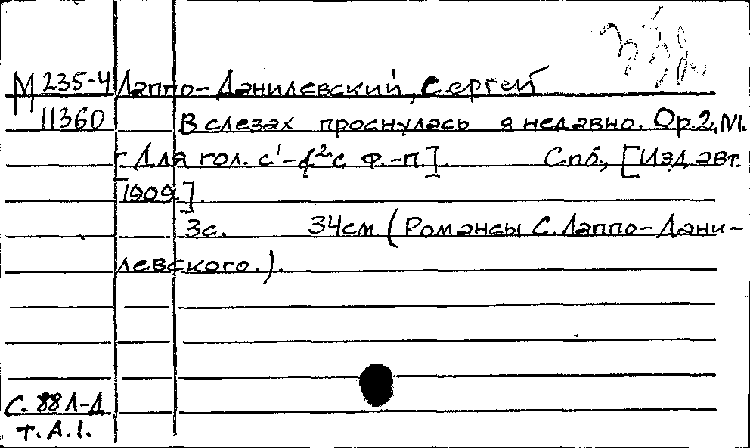 332
М 235-4 Лаппо-Данилевский, Сергей
11360 В слезах проснулась я недавно. Op.2, №1.
[Для гол. c¹-f² с ф.-п.]. Спб., [Изд. авт.
1909].
3с. 34см (Романсы С. Лаппо-Дани-
левского.).
С. 88 Л-Д
т. А.1.